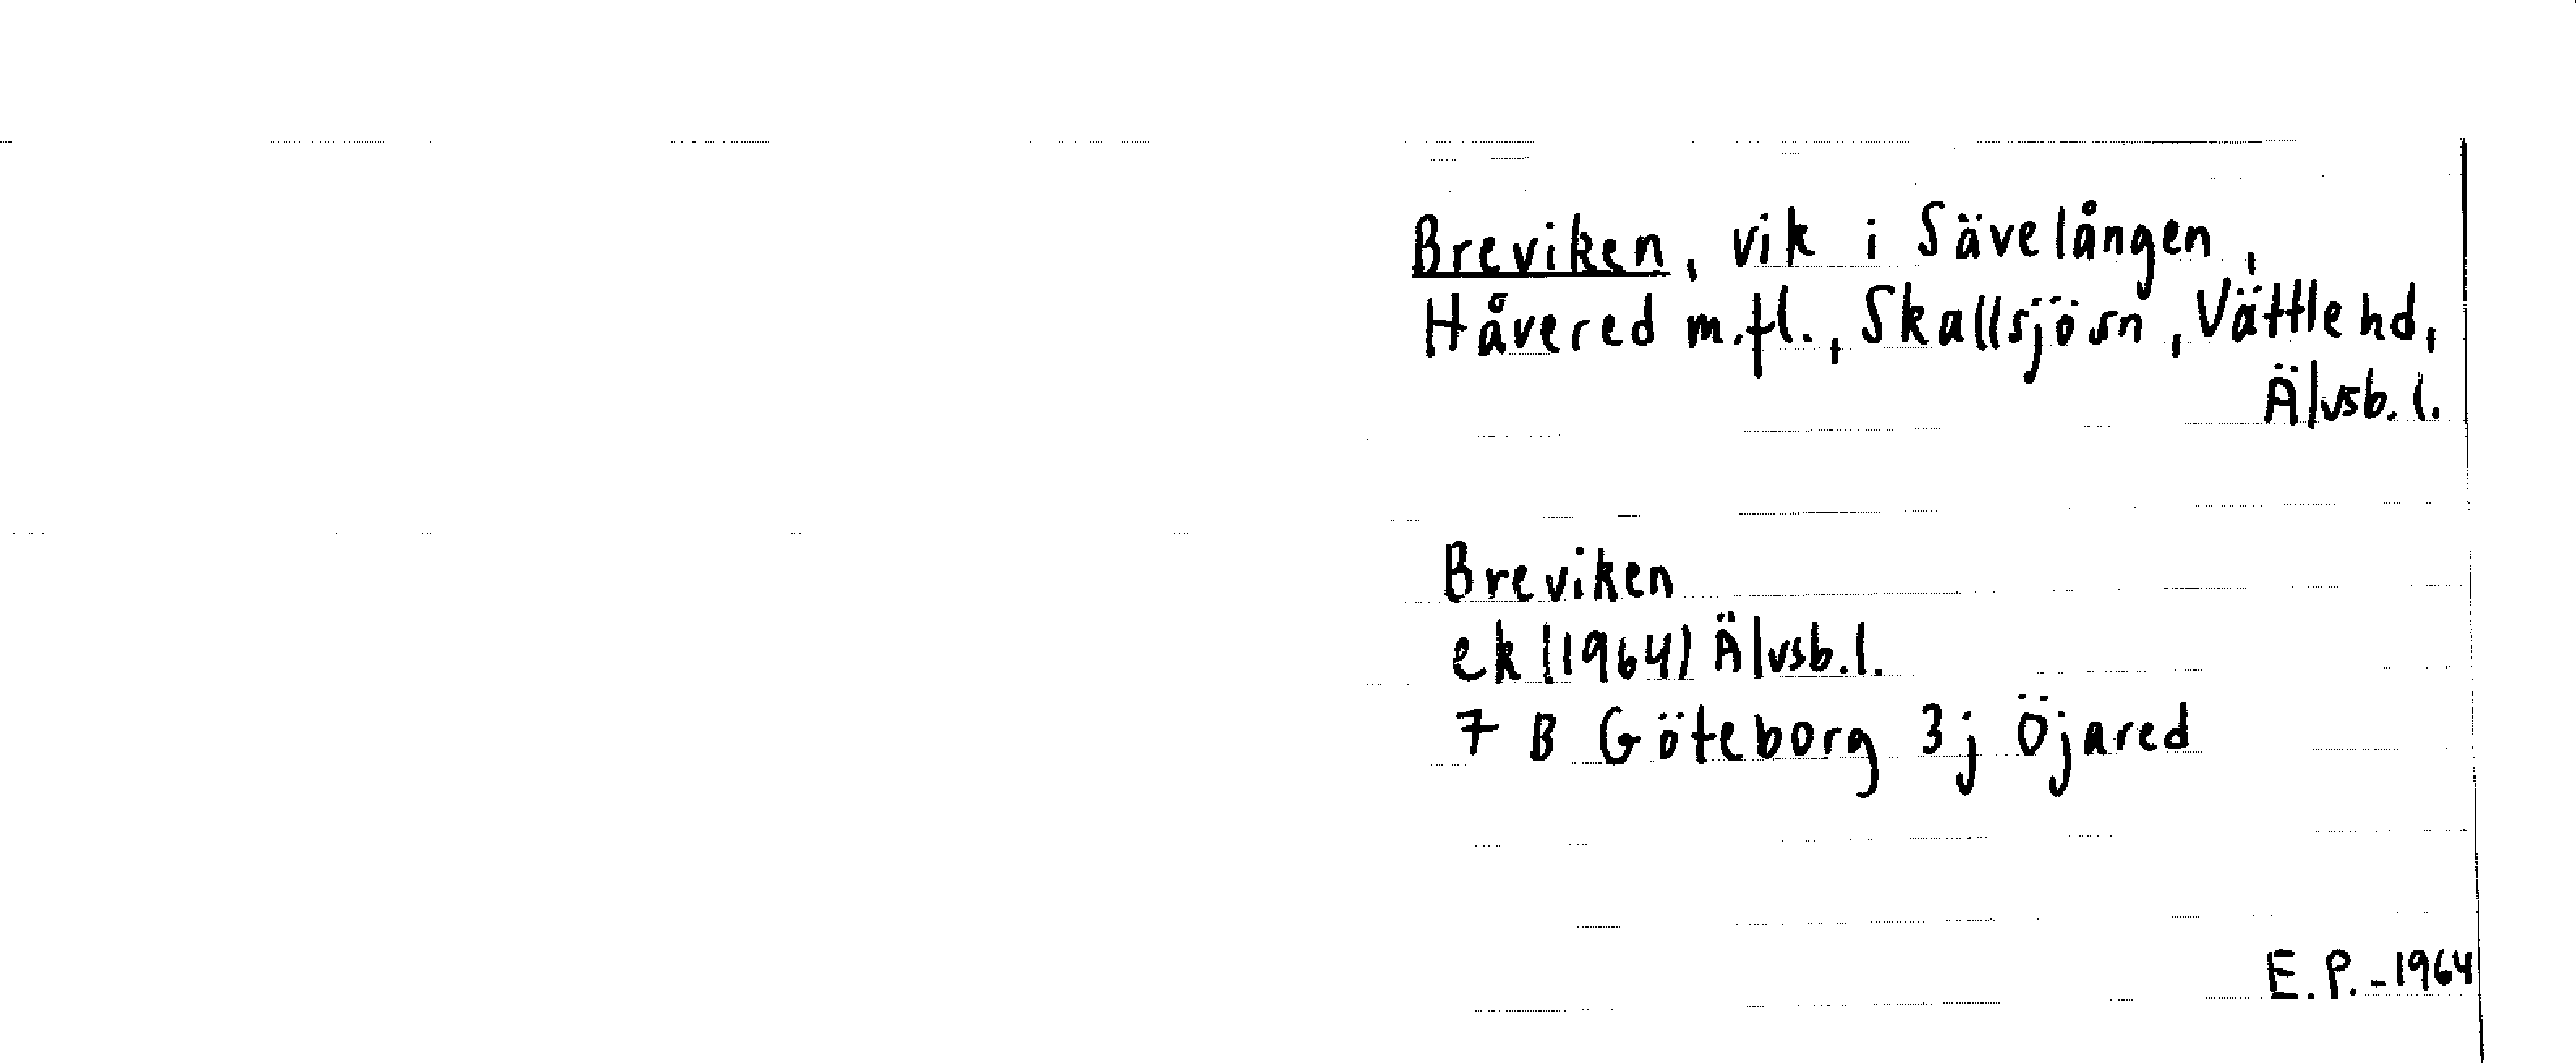 Breviken, vik i Sävelången,
Håvered m.fl., Skallsjösn, Vättlehd,
Älvsb.l.
Breviken
ek (1964) Älvsb.l.
7 B Göteborg 3j Öjared
E.P.-1964